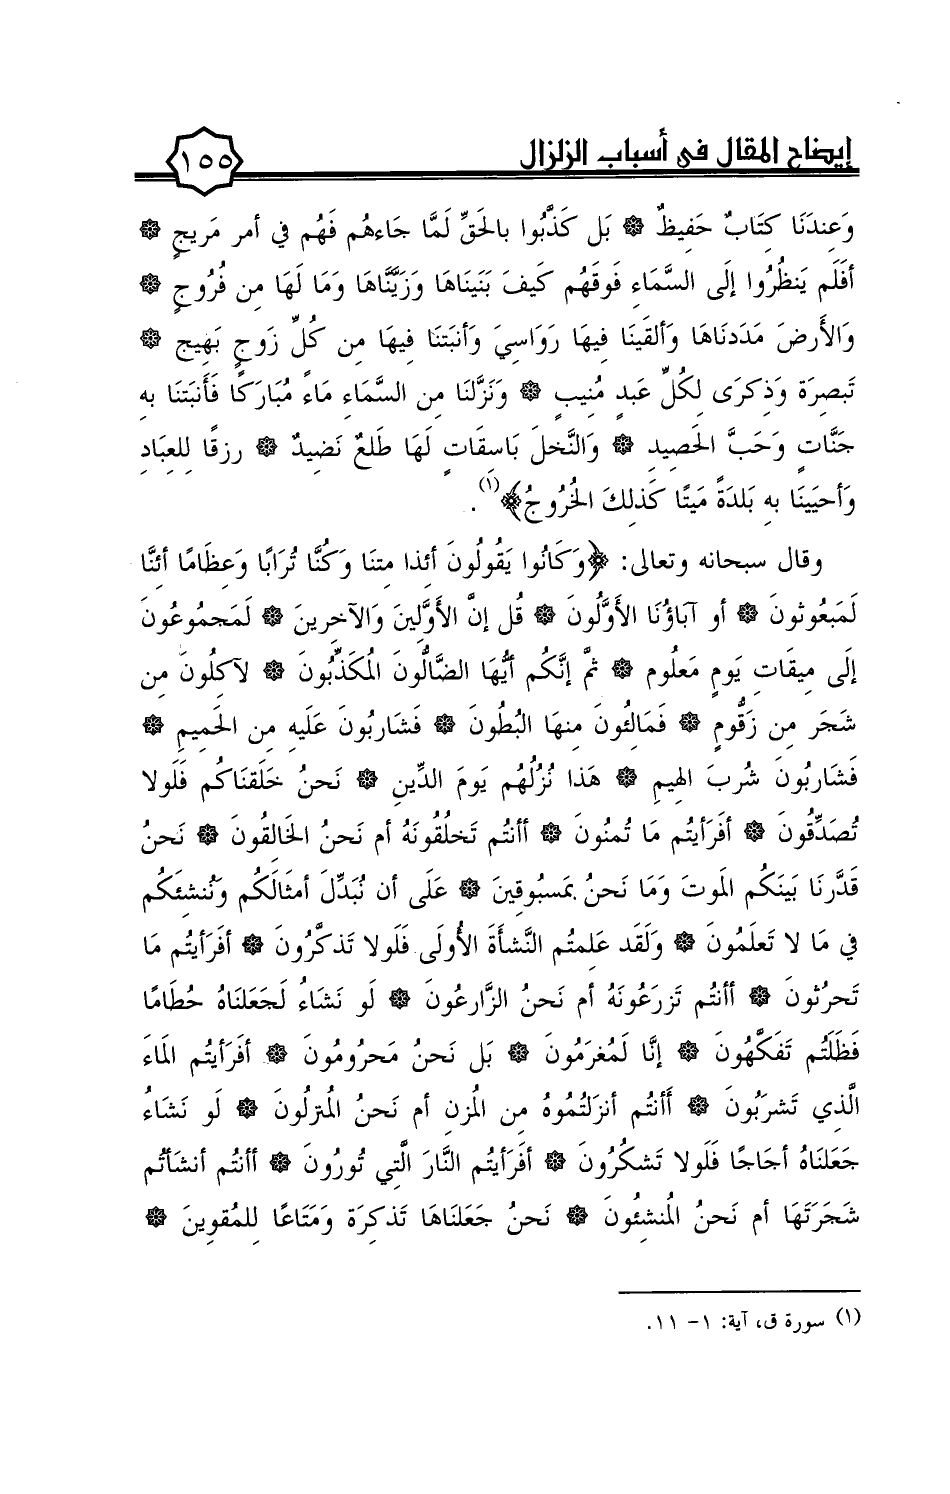 إيضاح المقال في أسباب الزلزال
١٥٥
وَعِندَنَا كِتَابٌ حَفِيظٌ ۞ بَل كَذَّبُوا بِالحَقِّ لَمَّا جَاءهُم فَهُم فِي أمرٍ مَرِيجٍ ۞
أفَلَم يَنظُرُوا إلَى السَّمَاءِ فَوقَهُم كَيفَ بَنَينَاهَا وَزَيَّنَّاهَا وَمَا لَهَا مِن فُرُوجٍ ۞
وَالأَرضَ مَدَدنَاهَا وَألقَينَا فِيهَا رَوَاسِيَ وَأنبَتنَا فِيهَا مِن كُلِّ زَوجٍ بَهِيجٍ ۞
تَبصِرَةً وَذِكرَى لِكُلِّ عَبدٍ مُنِيبٍ ۞ وَنَزَّلنَا مِن السَّمَاءِ مَاءً مُبَارَكًا فَأنبَتنَا بِهِ
جَنَّاتٍ وَحَبَّ الحَصِيدِ ۞ وَالنَّخلَ بَاسِقَاتٍ لَهَا طَلعٌ نَضِيدٌ ۞ رِزقًا لِلعِبَادِ
وَأحيَينَا بِهِ بَلدَةً مَيتًا كَذلِكَ الخُرُوجُ﴾(١).
وقال سبحانه وتعالى: ﴿وَكَانُوا يَقُولُونَ أئِذا مِتنَا وَكُنَّا تُرَابًا وَعِظَامًا أئِنَّا
لَمَبعُوثونَ ۞ أو آبَاؤُنَا الأَوَّلُونَ ۞ قُل إنَّ الأَوَّلِينَ وَالآخِرِينَ ۞ لَمَجمُوعُونَ
إلَى مِيقَاتِ يَومٍ مَعلُومٍ ۞ ثمَّ إنَّكُم أيُّهَا الضَّالُّونَ المُكَذِّبُونَ ۞ لآكِلُونَ مِن
شَجَرٍ مِن زَقُّومٍ ۞ فَمَالِئُونَ مِنهَا البُطُونَ ۞ فَشَارِبُونَ عَلَيهِ مِن الحَمِيمِ ۞
فَشَارِبُونَ شُربَ الهِيمِ ۞ هَذا نُزُلُهُم يَومَ الدِّينِ ۞ نَحنُ خَلَقنَاكُم فَلَولا
تُصَدِّقُونَ ۞ أفَرَأيتُم مَا تُمنُونَ ۞ أأنتُم تَخلُقُونَهُ أم نَحنُ الخَالِقُونَ ۞ نَحنُ
قَدَّرنَا بَينَكُم المَوتَ وَمَا نَحنُ بِمَسبُوقِينَ ۞ عَلَى أن نُبَدِّلَ أمثَالَكُم وَنُنشِئَكُم
فِي مَا لا تَعلَمُونَ ۞ وَلَقَد عَلِمتُم النَّشأةَ الأُولَى فَلَولا تَذكَّرُونَ ۞ أفَرَأيتُم مَا
تَحرُثونَ ۞ أأنتُم تَزرَعُونَهُ أم نَحنُ الزَّارِعُونَ ۞ لَو نَشَاءُ لَجَعَلنَاهُ حُطَامًا
فَظَلَتُم تَفَكَّهُونَ ۞ إنَّا لَمُغرَمُونَ ۞ بَل نَحنُ مَحرُومُونَ ۞ أفَرَأيتُم المَاءَ
الَّذِي تَشرَبُونَ ۞ أَأنتُم أنزَلتُمُوهُ مِن المُزنِ أم نَحنُ المُنزِلُونَ ۞ لَو نَشَاءُ
جَعَلنَاهُ أجَاجًا فَلَولا تَشكُرُونَ ۞ أفَرَأيتُم النَّارَ الَّتِي تُورُونَ ۞ أأنتُم أنشَأتُم
شَجَرَتَهَا أم نَحنُ المُنشِئُونَ ۞ نَحنُ جَعَلنَاهَا تَذكِرَةً وَمَتَاعًا لِلمُقوِينَ ۞
(١) سورة ق، آية: ١- ١١.